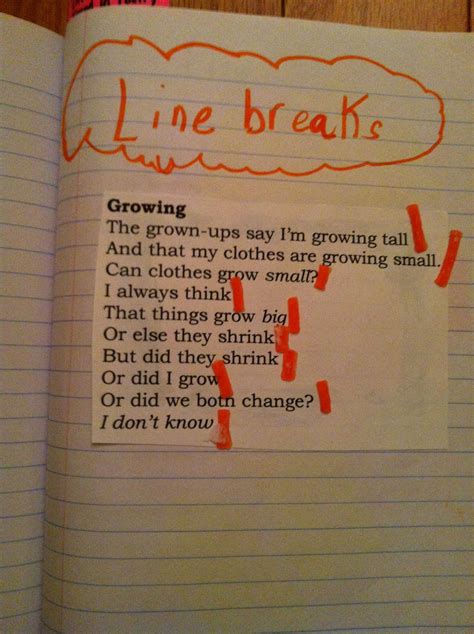 Line breaks
Growing
The grown-ups say I'm growing tall
And that my clothes are growing small.
Can clothes grow small?
I always think
That things grow big
Or else they shrink
But did they shrink
Or did I grow
Or did we both change?
I don't know